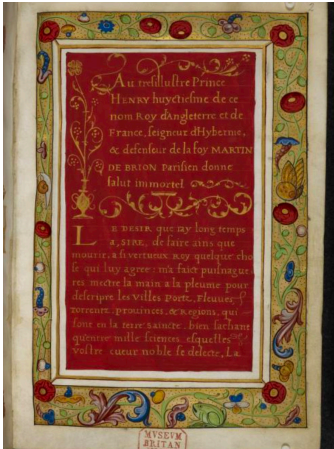 Au tresillustre Prince
HENRY huyctiesme de ce
nom Roy dAngleterre et de
France, seigneur dHyberme,
& defenseur de la foy MARTIN
DE BRION Parisien donne
salut immortel
LE DESIR que iay long temps
a, SIRE, de faire ains que
mourir, a si vertueux Roy quelque cho
se qui luy agree: m'a faict puisnague
res mectre la main a la pleume pour
descripre les Villes Portz, Fleuues,
torrentz, prouinces, & Regions, qui
sont en la terre Saincte. bien sachant
qu'entre mille sciences esquelles
vostre cueur noble se delecte, La
MVSEVM
BRITAN